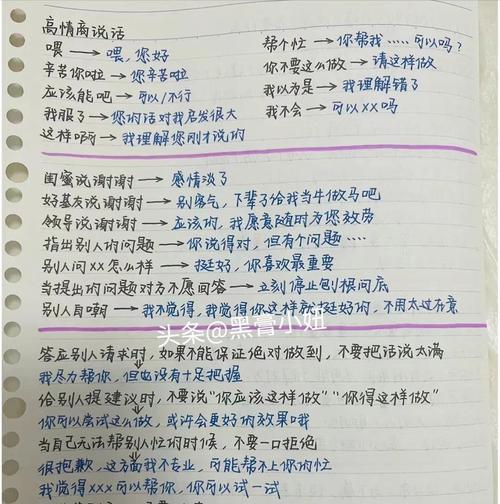 高情商说话
喂 → 喂，您好
辛苦你啦 → 您辛苦啦
应该能吧 → 可以/不行
我服了 → 您的话对我启发很大
这样啊 → 我理解您刚才说的
帮个忙 → 你帮我……可以吗？
你不要这么做 → 请这样做
我以为是 → 我理解错了
我不会 → 可以XX吗
闺蜜说谢谢 → 感情淡了
好基友说谢谢 → 别客气，下辈子给我当牛做马吧
领导说谢谢 → 应该的，我愿意随时为您效劳
指出别人的问题 → 你说得对，但有个问题……
别人问XX怎么样 → 挺好，你喜欢最重要
当提出的问题对方不愿回答 → 立刻停止刨根问底
别人自嘲 → 我不觉得，我觉得你这样就挺好的，不用太过在意
头条@黑膏小妞
答应别人请求时，如果不能保证绝对做到，不要把话说太满
我尽力帮你，但也没有十足把握
给别人提建议时，不要说“你应该这样做”“你得这样做”
你可以尝试这么做，或许会更好的效果哦
当自己无法帮别人忙的时候，不要一口拒绝
很抱歉，这方面我不专业，可能帮不上你的忙
我觉得xxx可以帮你，你可以试一试